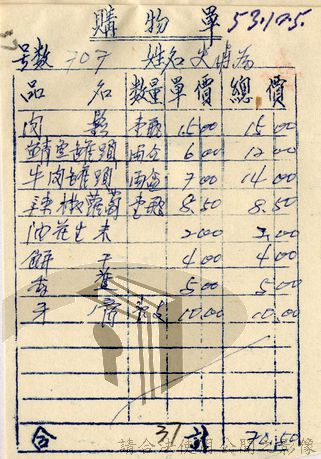 購物單 53.12.5.
号数 707 姓名
品名 数量 單價 總價
肉鬆 壹 15.00 15.00
鯖魚罐頭 兩 6.00 12.00
牛肉罐頭 兩 7.00 14.00
辣椒蘿蔔 壹 8.50 8.50
油花生米 2.00 2.00
餅干 4.00 4.00
5.00 5.00
手 10.00 10.00
合 計 70.50
請合法使用公開之影像